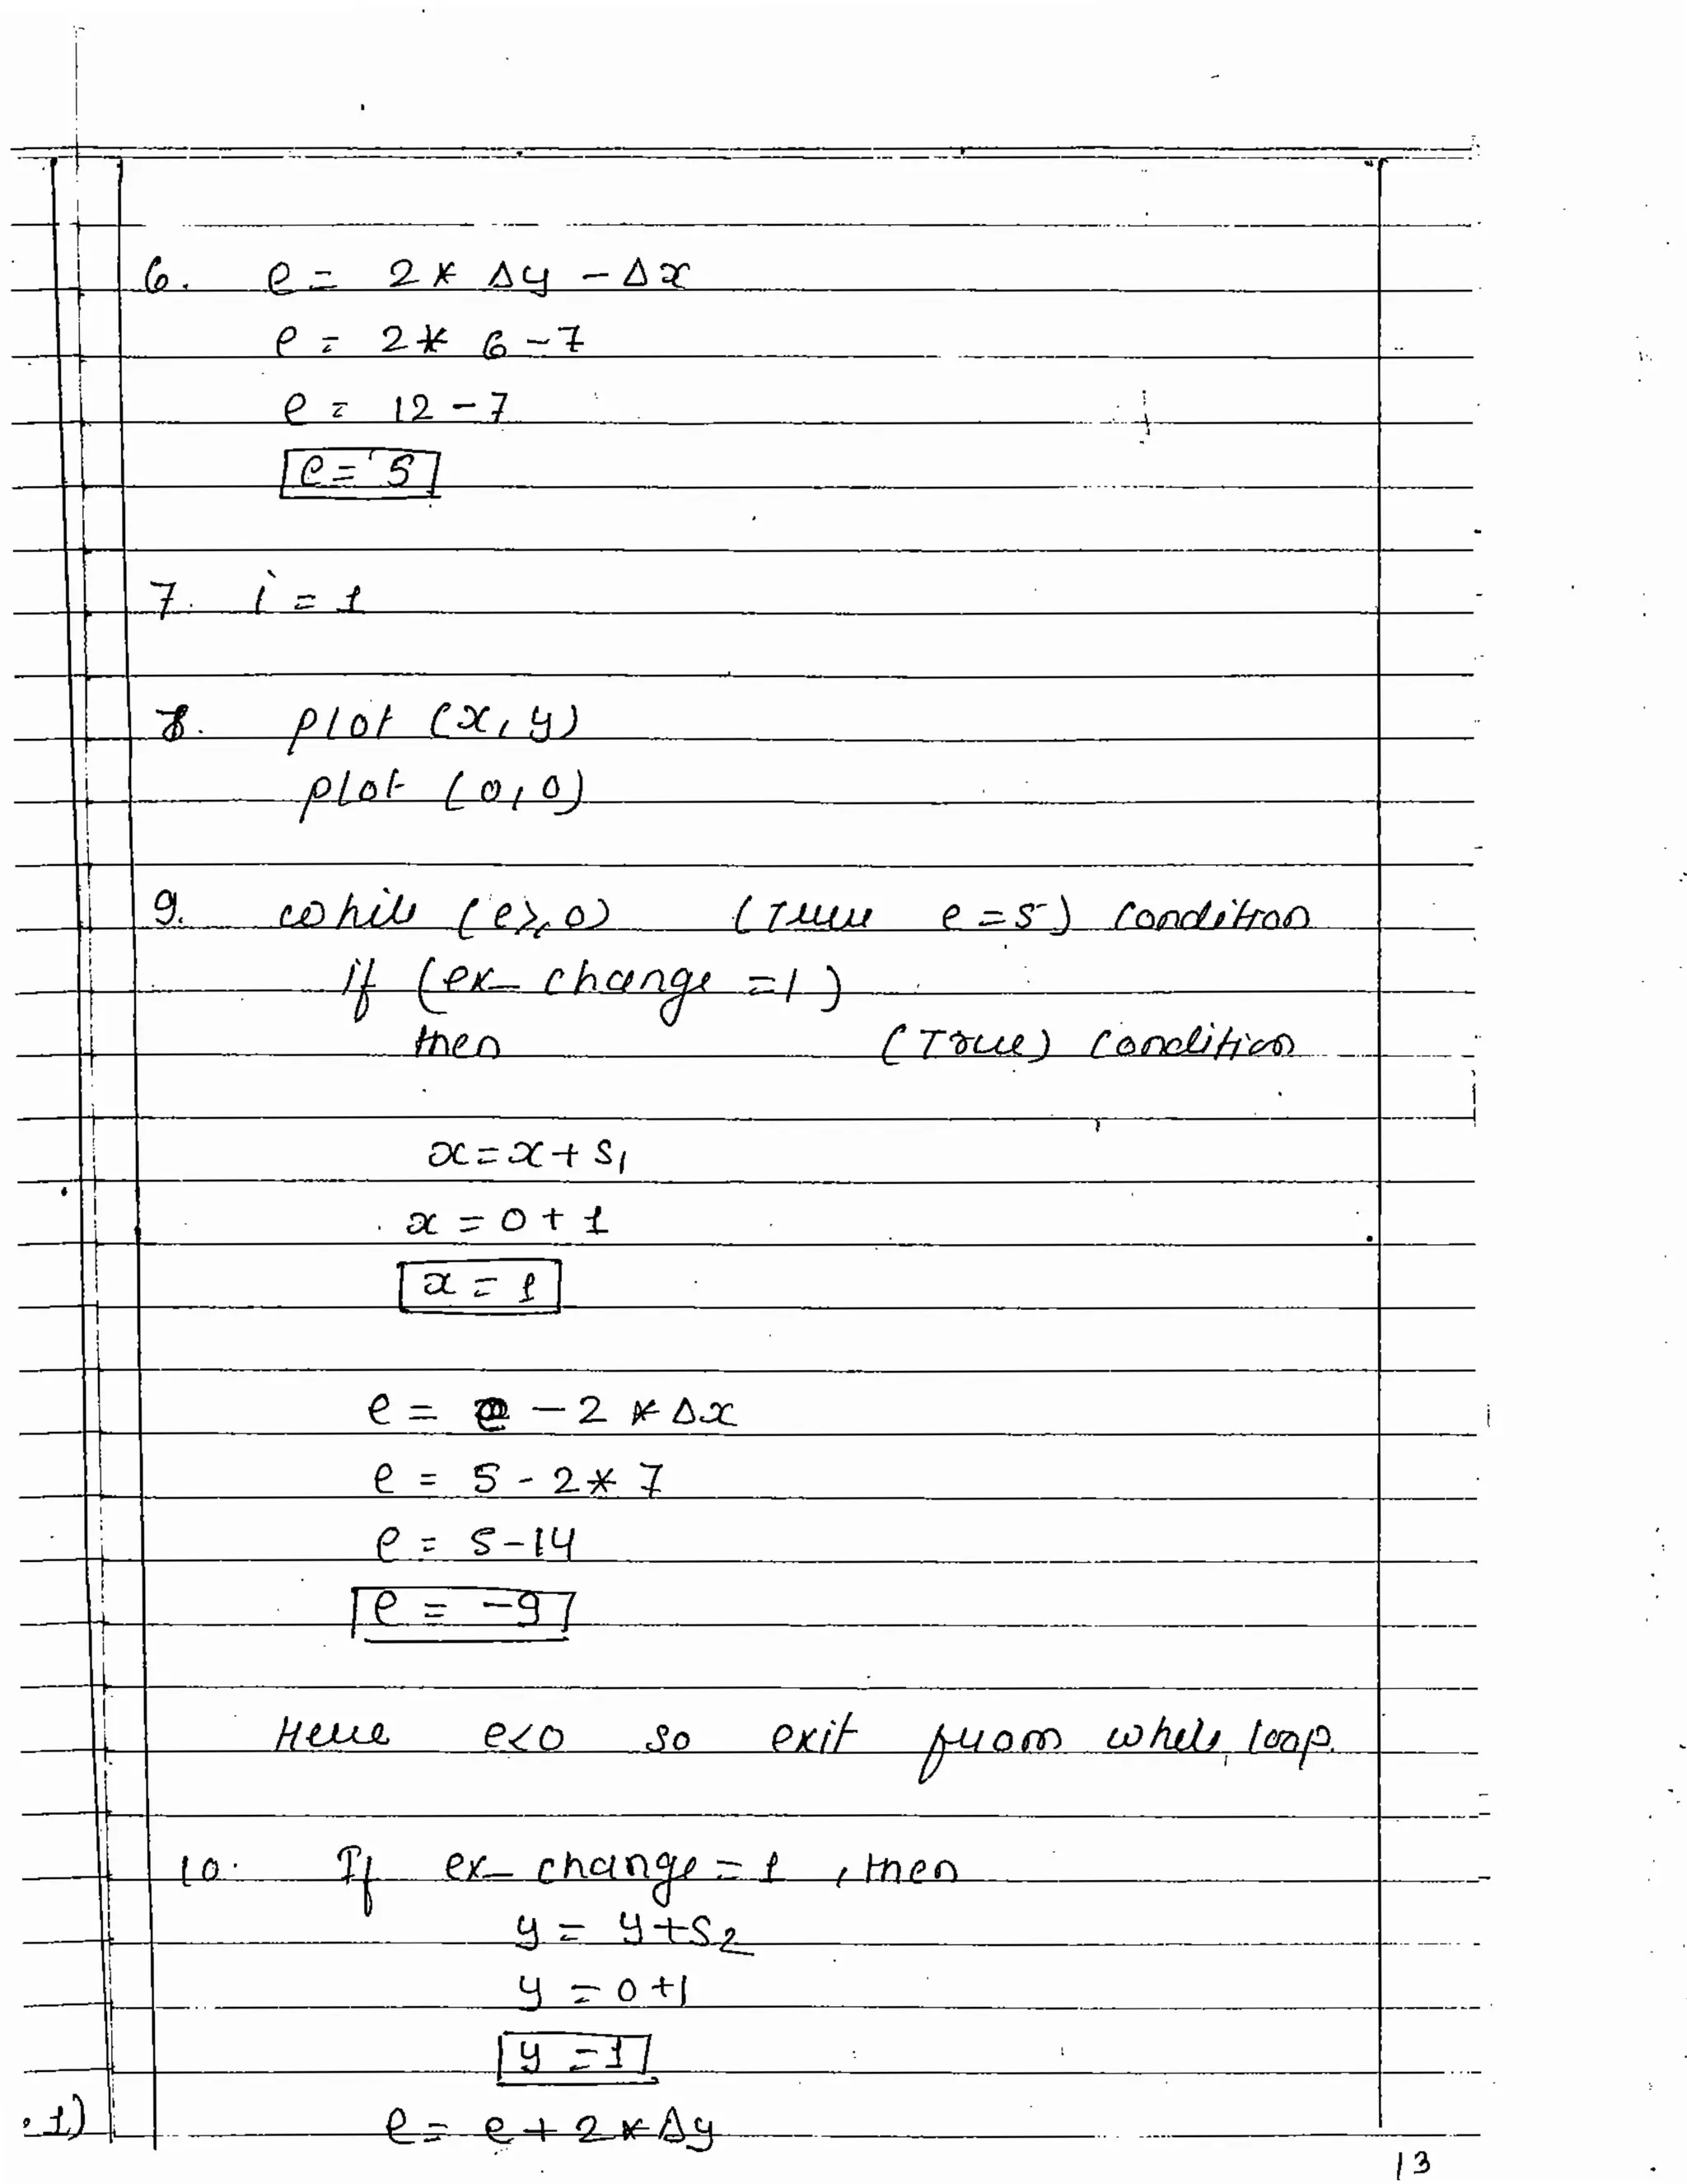 6. e = 2 * Δy - Δx
e = 2 * 6 - 7
e = 12 - 7
e = 5
7. i = 1
8. plot (x, y)
plot (0, 0)
9. while (e ≥ 0) (True e = 5) condition
if (ex_change = 1)
then (True) condition
x = x + S1
x = 0 + 1
x = 1
e = e - 2 * Δx
e = 5 - 2 * 7
e = 5 - 14
e = -9
Here e < 0 so exit from while loop.
10. If ex_change = 1, then
y = y + S2
y = 0 + 1
y = 1
1) e = e + 2 * Δy
13